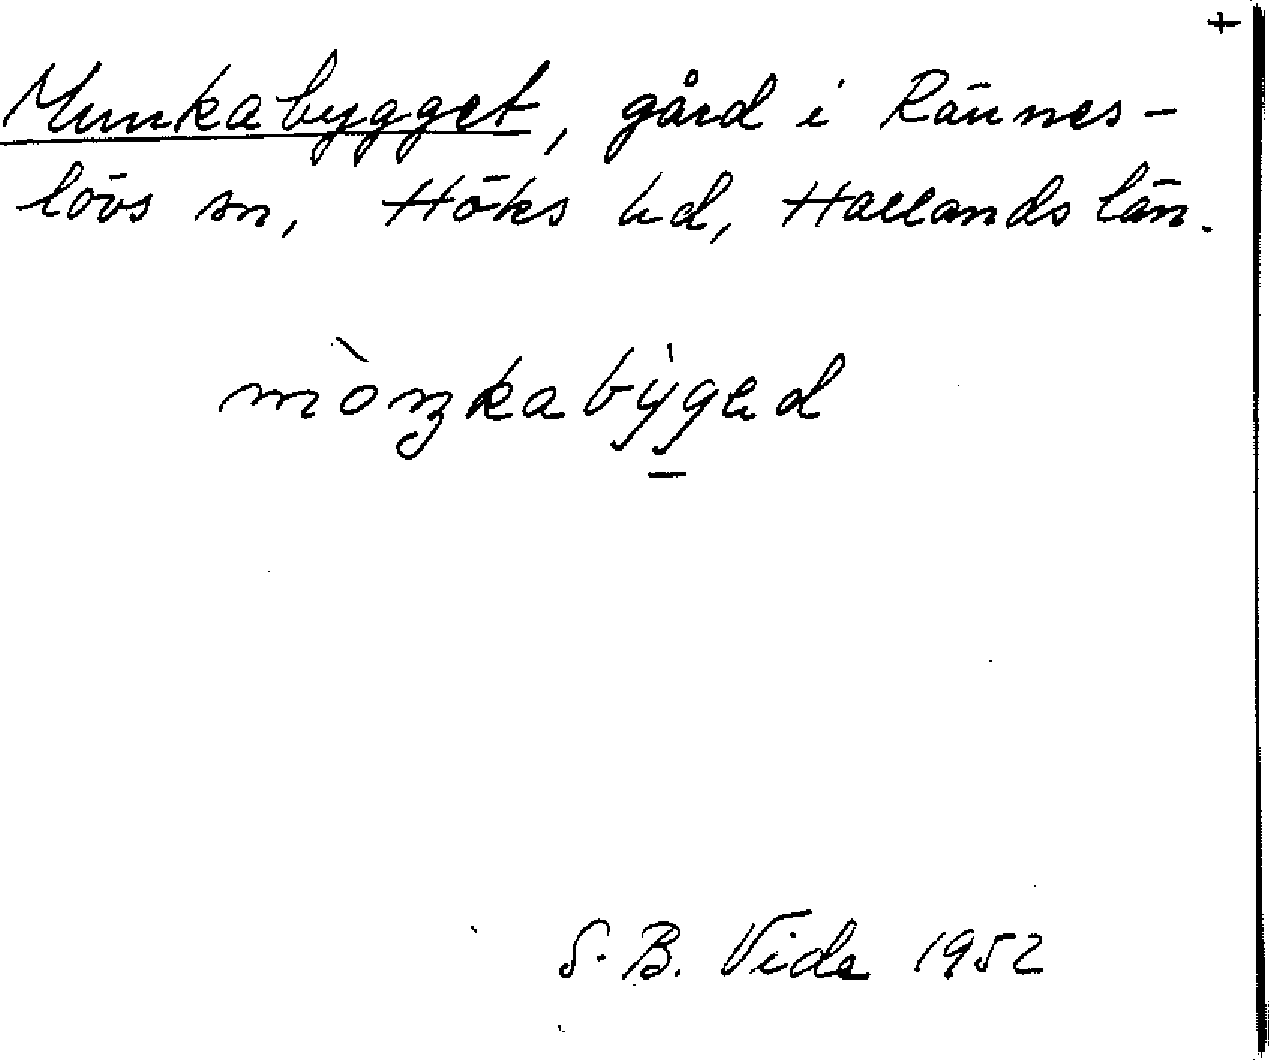 +
Munkabygget, gård i Rännes-
lövs sn, Höks hd, Hallands län.
mòŋkabýgad
S. B. Vide 1952